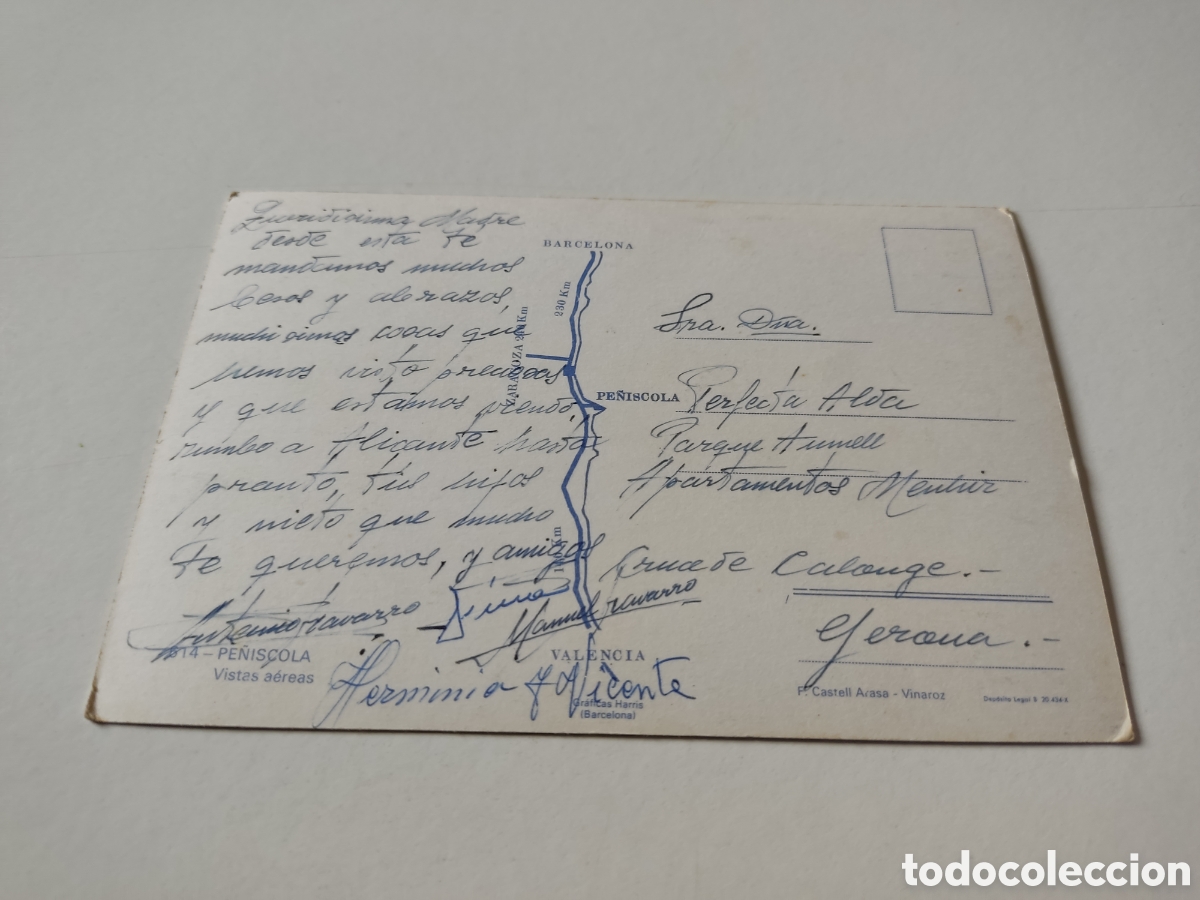 Queridisima Madre
desde esta te
mandamos muchos
besos y abrazos,
muchisimos cosas que
hemos visto preciosas
y que estamos yendo,
rumbo a Alicante hasta
pronto, tus hijos
y nieto que mucho
te queremos, y amigos
Antonio Navarro
Manuel Navarro
Herminia y Vicente
514 - PEÑISCOLA
Vistas aéreas
BARCELONA
230 Km
ZARAGOZA
PEÑISCOLA
Km
VALENCIA
Gráficas Harris
(Barcelona)
Sra. Dña.
Perfecta Alda
Parque
Apartamentos
Cruce de Calonge.-
Gerona.-
F. Castell Arasa - Vinaroz
Depósito Legal B 20.434-X
todocoleccion